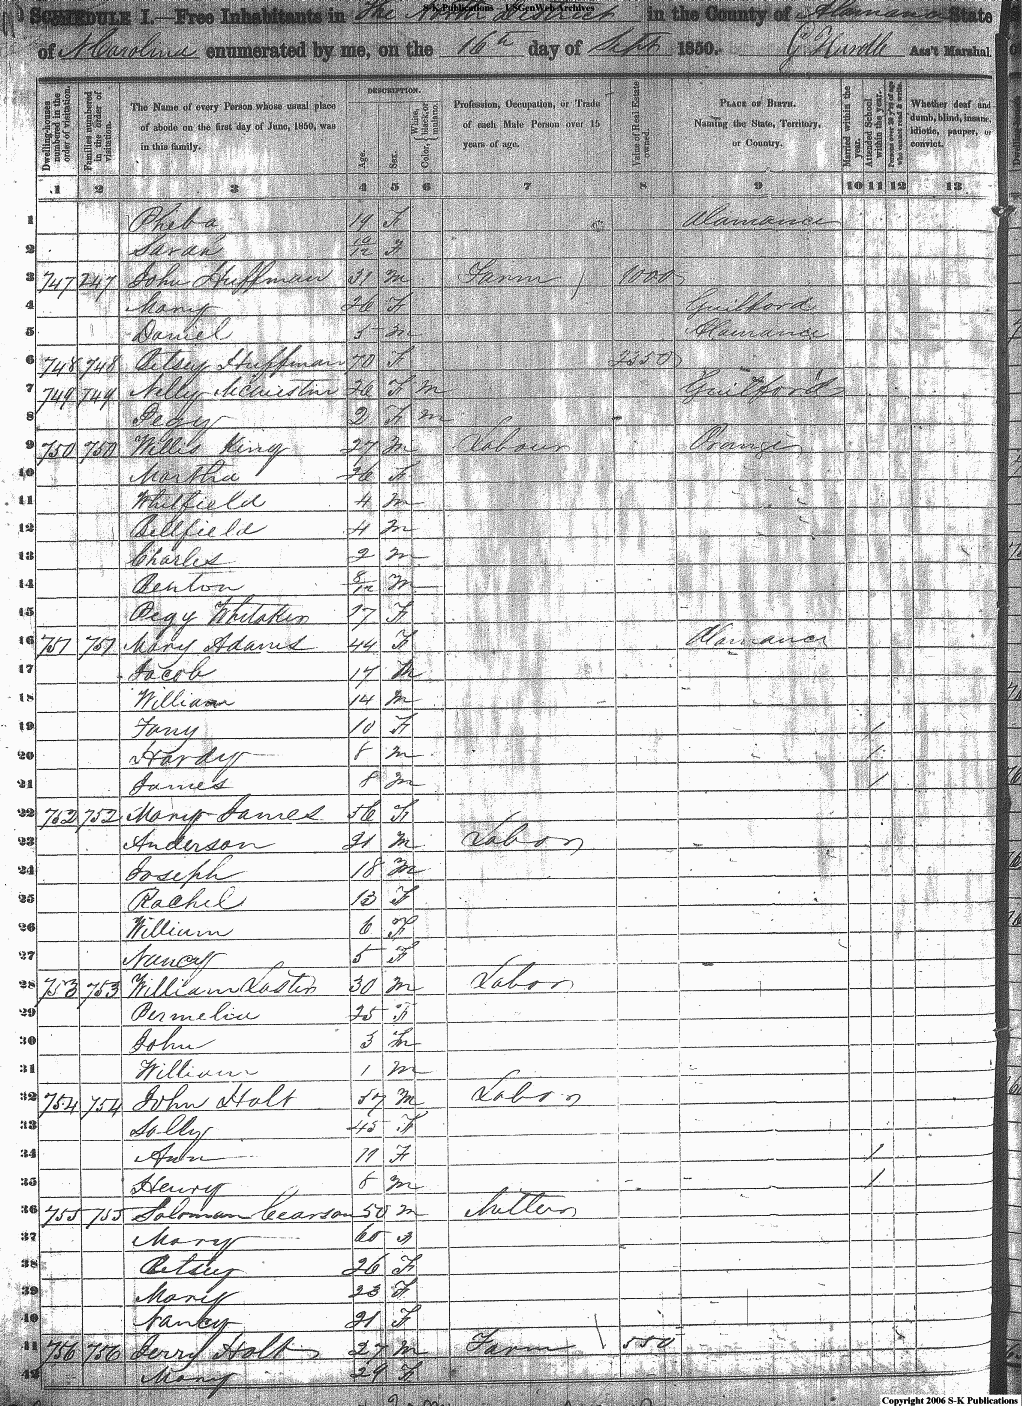 S-K Publications - USGenWeb Archives
SCHEDULE I.—Free Inhabitants in The North District in the County of Alamance State
of N Carolina enumerated by me, on the 16th day of Sept 1850. Hurdle Ass't Marshal.
Dwelling-houses numbered in the order of visitation.
Families numbered in the order of visitation.
The Name of every Person whose usual place of abode on the first day of June, 1850, was in this family.
DESCRIPTION.
Age.
Sex.
Color, White, black, or mulatto.
Profession, Occupation, or Trade of each Male Person over 15 years of age.
Value of Real Estate owned.
PLACE OF BIRTH. Naming the State, Territory, or Country.
Married within the year.
Attended School within the year.
Persons over 20 y'rs of age who cannot read & write.
Whether deaf and dumb, blind, insane, idiotic, pauper, or convict.
1 2 3 4 5 6 7 8 9 10 11 12 13
1 Pheba 19 F Alamance
2 Sarah 10/12 F
3 747 747 John Huffman 31 M Farm 1000
4 Mary 26 F Guilford
5 Daniel 5 M Alamance
6 748 748 Betsey Huffman 70 F 2350
7 749 749 Nelly 26 F M Guilford
8 Pegy 2 F M
9 750 750 Willis King 27 M Labour Orange
10 Martha 26 F
11 Whitfield 4 M
12 Bellfield 4 M
13 Charles 2 M
14 Benton 8/12 M
15 Pegy Whitaker 17 F
16 751 751 Mary Adams 44 F Alamance
17 Jacob 17 M
18 William 14 M
19 Fany 10 F 1
20 Hardy 8 M 1
21 James 8 M 1
22 752 752 Mary James 56 F
23 Anderson 21 M Labor
24 Joseph 18 M
25 Rachel 13 F
26 William 6 F
27 Nancy 5 F
28 753 753 William Laster 30 M Labor
29 Permelia 25 F
30 John 3 M
31 William 1 M
32 754 754 John Holt 57 M Labor
33 Sally 45 F
34 Ann 11 F 1
35 Henry 8 M 1
36 755 755 Soloman 50 M
37 Mary 60
38 Betsey 26 F
39 Mary 23 F
40 Nancy 21 F
41 756 756 Jerry Holt 27 M Farm 550
42 Mary 29 F
Copyright 2006 S-K Publications